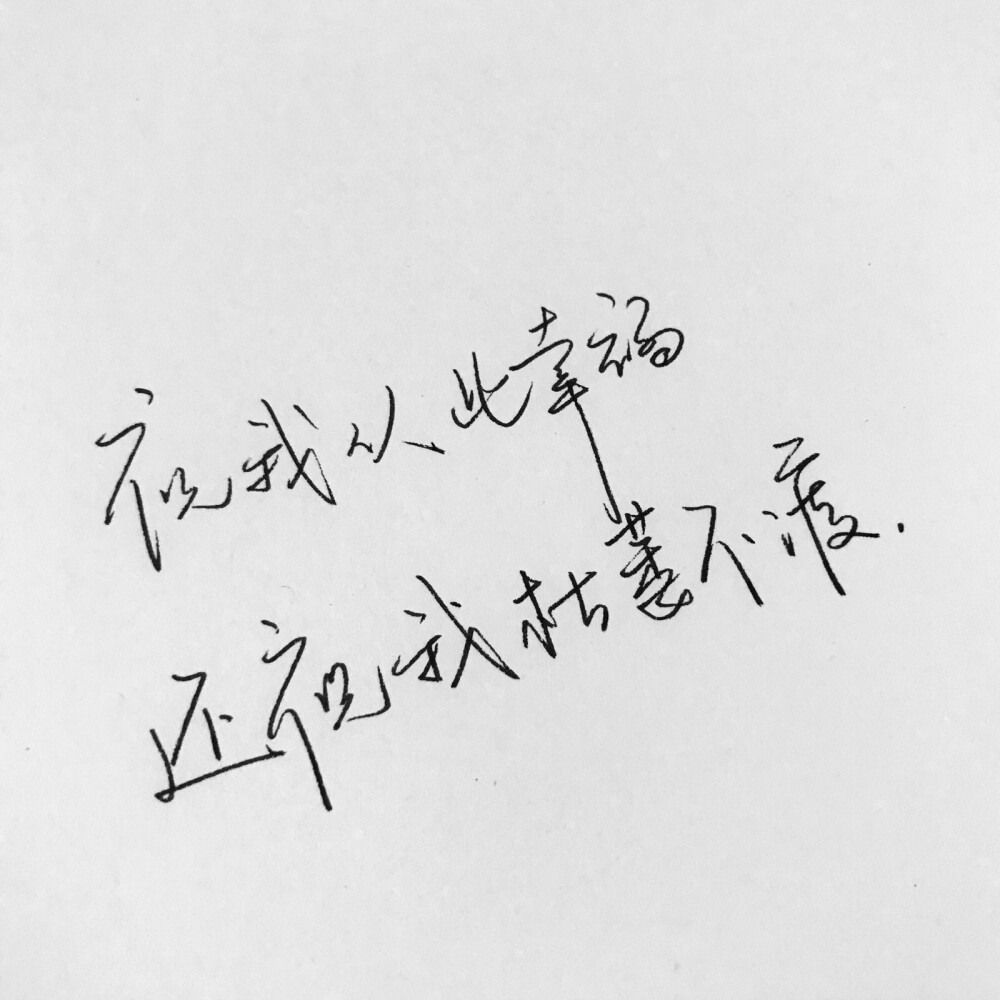 祝我从此幸福
还祝我枯萎不渡.